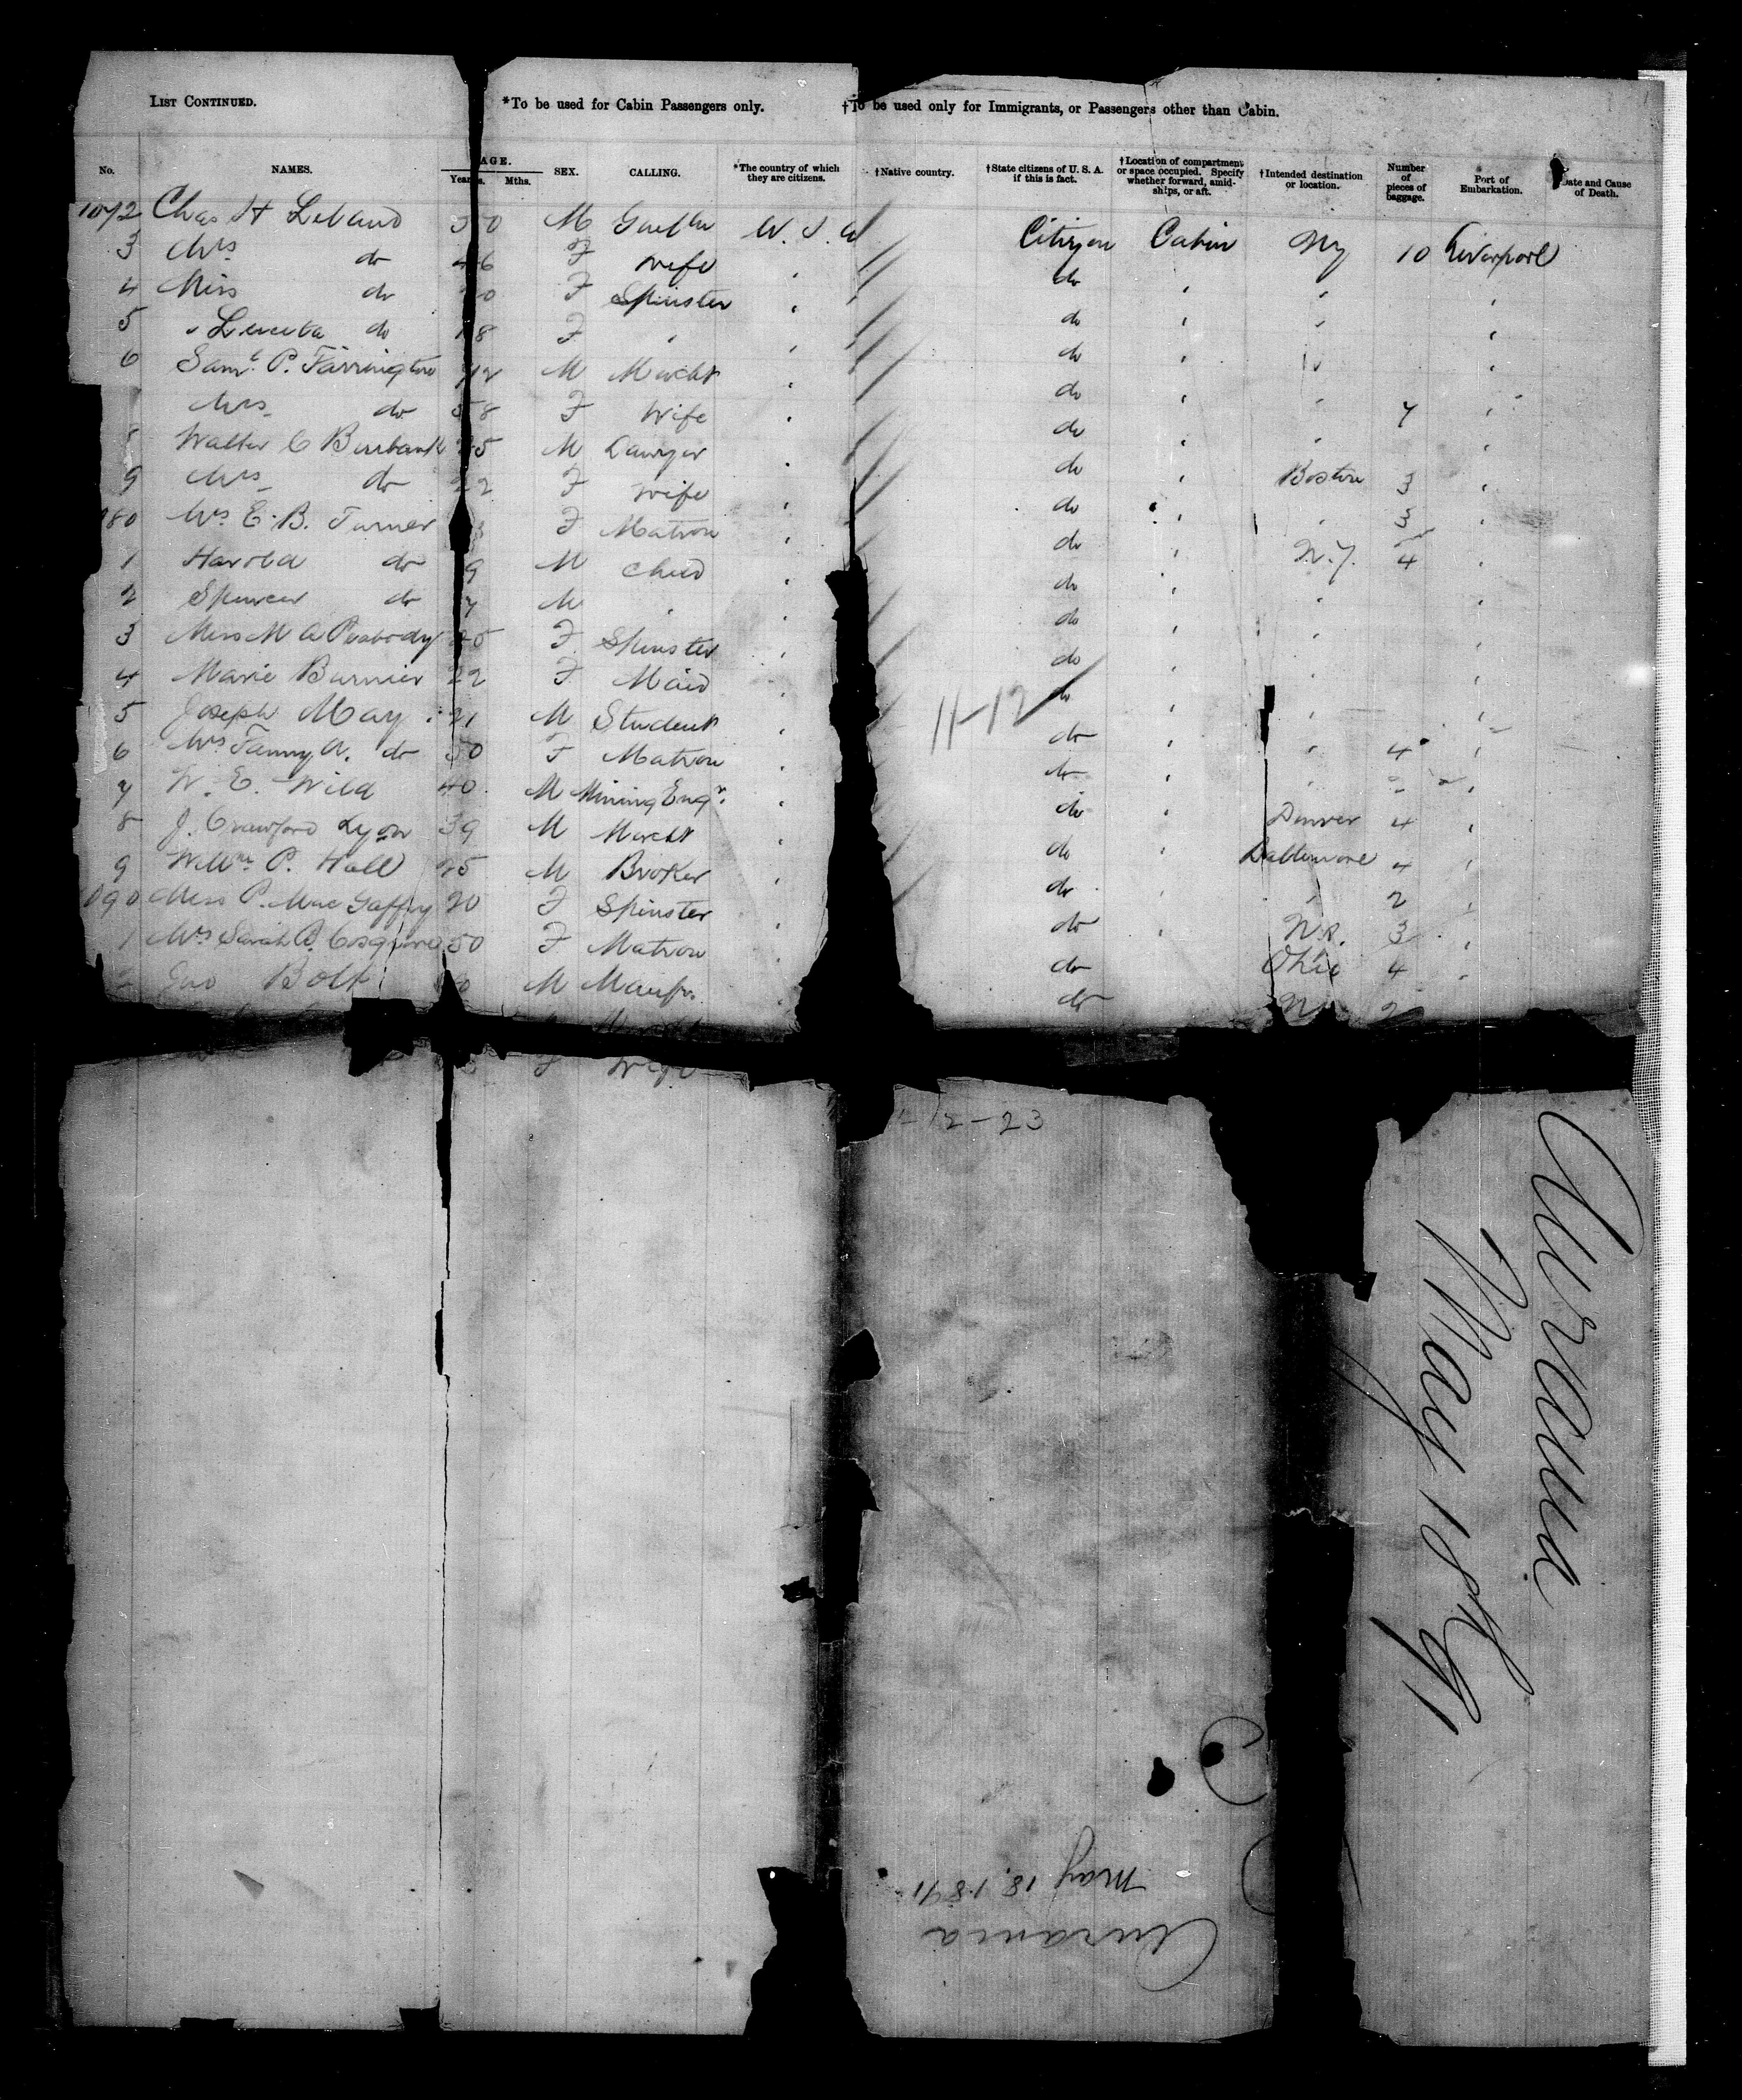 LIST CONTINUED. *To be used for Cabin Passengers only. †To be used only for Immigrants, or Passengers other than Cabin.
No. NAMES. AGE. Years. Mths. SEX. CALLING. *The country of which they are citizens. †Native country. †State citizens of U. S. A. if this is fact. †Location of compartment or space occupied. Specify whether forward, amidships, or aft. †Intended destination or location. Number of pieces of baggage. Port of Embarkation. Date and Cause of Death.
1072 Chas H Leland 50 M U. S. A Citizen Cabin NY 10 Liverpool
3 Mrs do 46 F Wife " do " " "
4 Miss do 20 F Spinster " do " " "
5 " do 18 F " " do " " "
6 Saml. P. Farrington M Mercht " do " " "
Mrs do 58 F Wife " do " " 7 "
8 Walter C Burbank 35 M Lawyer " do " Boston 3 "
9 Mrs do 22 F Wife " do " " 3 "
080 Mrs E. B. Turner F Matron " do " N.Y. 4 "
1 Harold do 9 M Child " do " " "
2 Spencer do 7 M " " do " " "
3 Miss M A Peabody F Spinster " do " " "
4 Marie Burnier 22 F Maid " do " " "
5 Joseph May 21 M Student " do " " 4 "
6 Mrs Fanny A. do 50 F Matron " do " " "
7 W. E. Wild 40 M Mining Engr. " do " Denver 4 "
8 J. Crawford Lyon 39 M Mercht " do " Baltimore 4 "
9 Willm. P. Hall 25 M Broker " do " " 2 "
090 Miss P. MacGaffey 20 F Spinster " do " 3 "
1 Mrs Sarah B. 50 F Matron " do Ohio 4 "
2 Jno Bolt M Manfr. " do 2
F Wife
11-12
12-23
Aurania
May 18th 91
May 18, 1891
Aurania